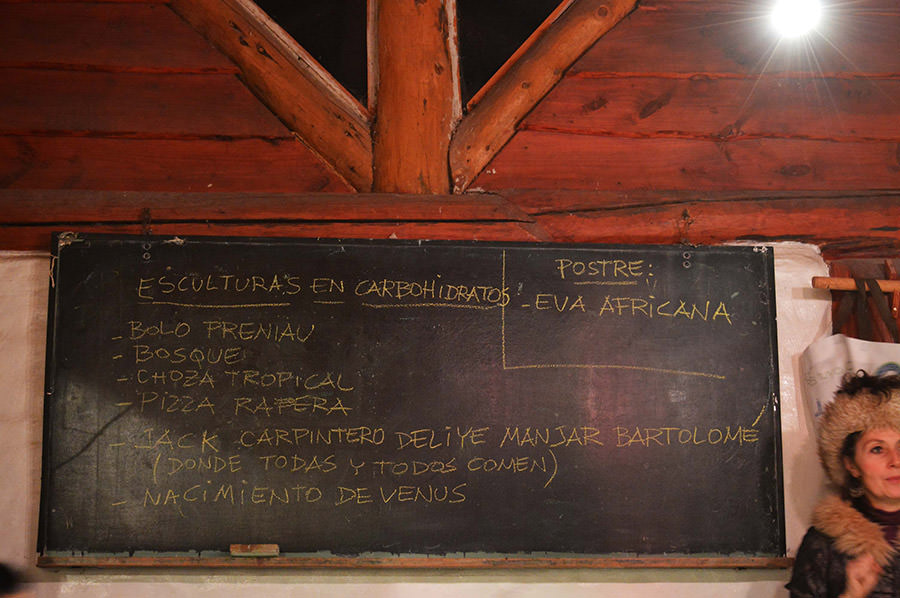 ESCULTURAS EN CARBOHIDRATOS
- BOLO PRENIAU
- BOSQUE
- CHOZA TROPICAL
- PIZZA RAPERA
- JACK CARPINTERO DELIYE MANJAR BARTOLOMÉ
(DONDE TODAS Y TODOS COMEN)
- NACIMIENTO DE VENUS
POSTRE:
- EVA AFRICANA